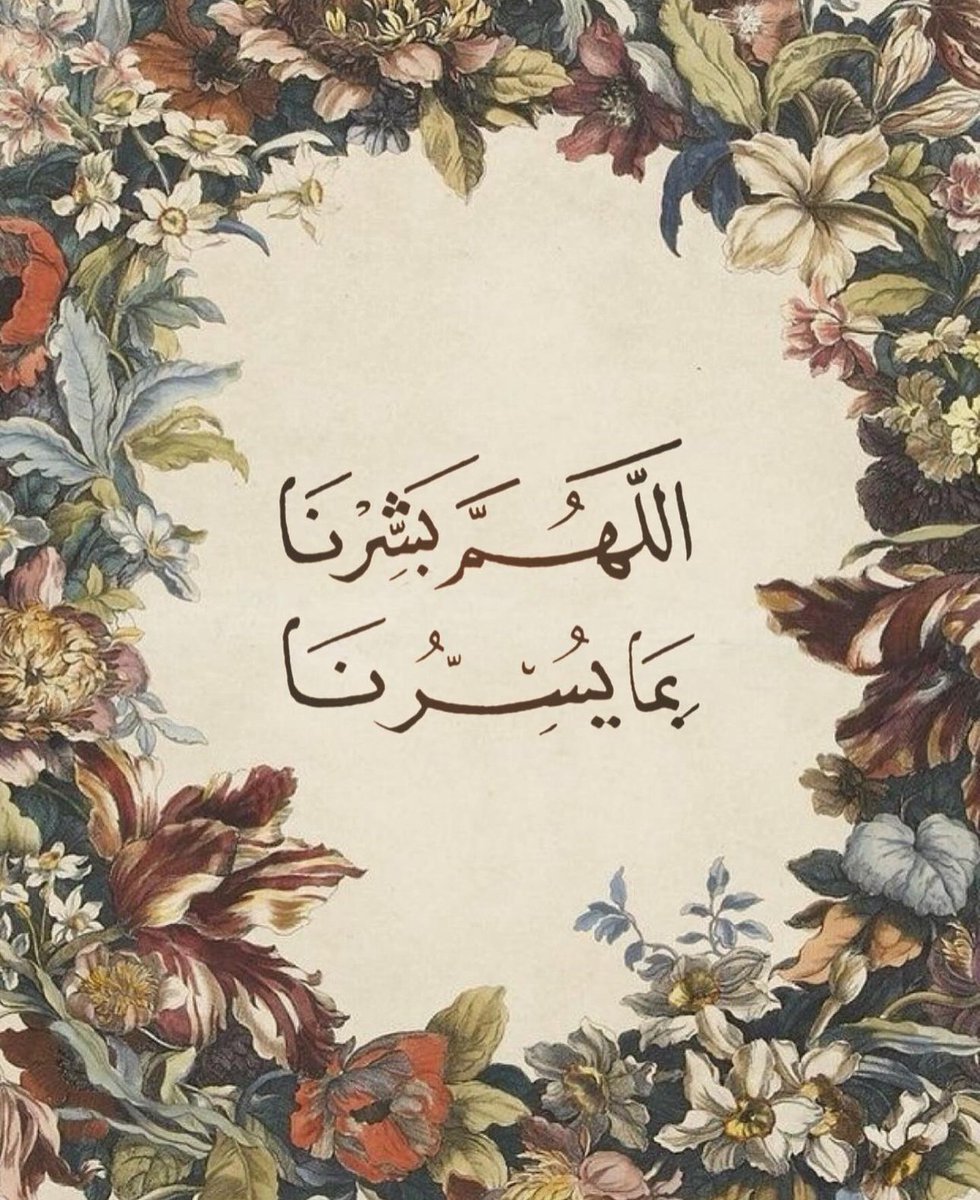 اللَّهُمَّ بَشِّرْنَا
بِمَا يَسُرُّنَا